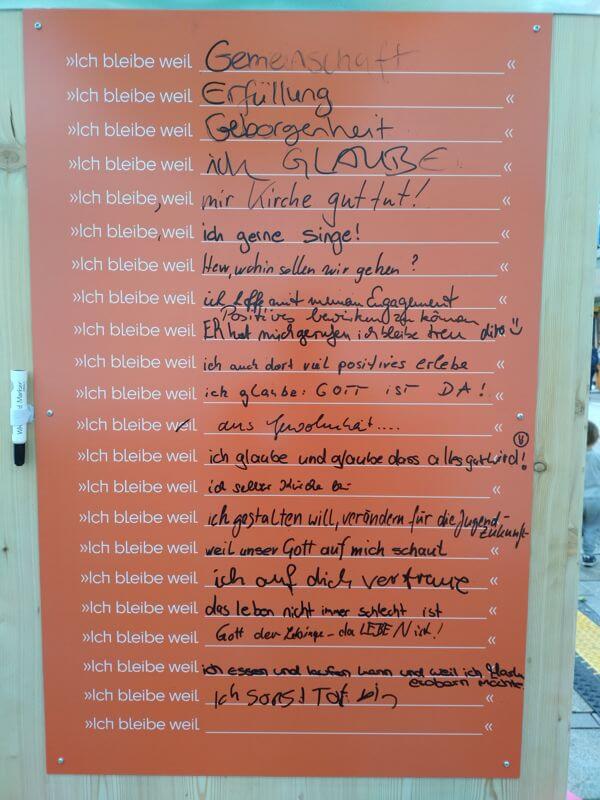 »Ich bleibe weil Gemeinschaft «
»Ich bleibe weil Erfüllung «
»Ich bleibe weil Geborgenheit «
»Ich bleibe weil ich GLAUBE «
»Ich bleibe, weil mir Kirche gut tut! «
»Ich bleibe, weil ich gerne singe! «
»Ich bleibe weil Herr, wohin sollen wir gehen? «
»Ich bleibe weil ich hoffe mit meinem Engagement «
Positives bewirken zu können
»Ich bleibe weil ER hat mich gerufen ich bleibe treu dito
»Ich bleibe weil ich auch dort viel positives erlebe «
»Ich bleibe weil ich glaube: GOTT IST DA! «
»Ich bleibe weil aus Gewohnheit.... «
»Ich bleibe weil ich glaube und glaube dass alles gut wird!
»Ich bleibe weil ich selber Kirche bin «
»Ich bleibe weil ich gestalten will, verändern für die Jugend,-
Zukunft
»Ich bleibe weil weil unser Gott auf mich schaut «
»Ich bleibe weil ich auf dich vertraue «
»Ich bleibe weil das leben nicht immer schlecht ist «
»Ich bleibe weil Gott der - das LEBEN ist! «
»Ich bleibe weil ich essen und laufen kann und weil ich
erobern möchte
»Ich bleibe weil Ich sonst Tot bin «
»Ich bleibe weil «
Marker